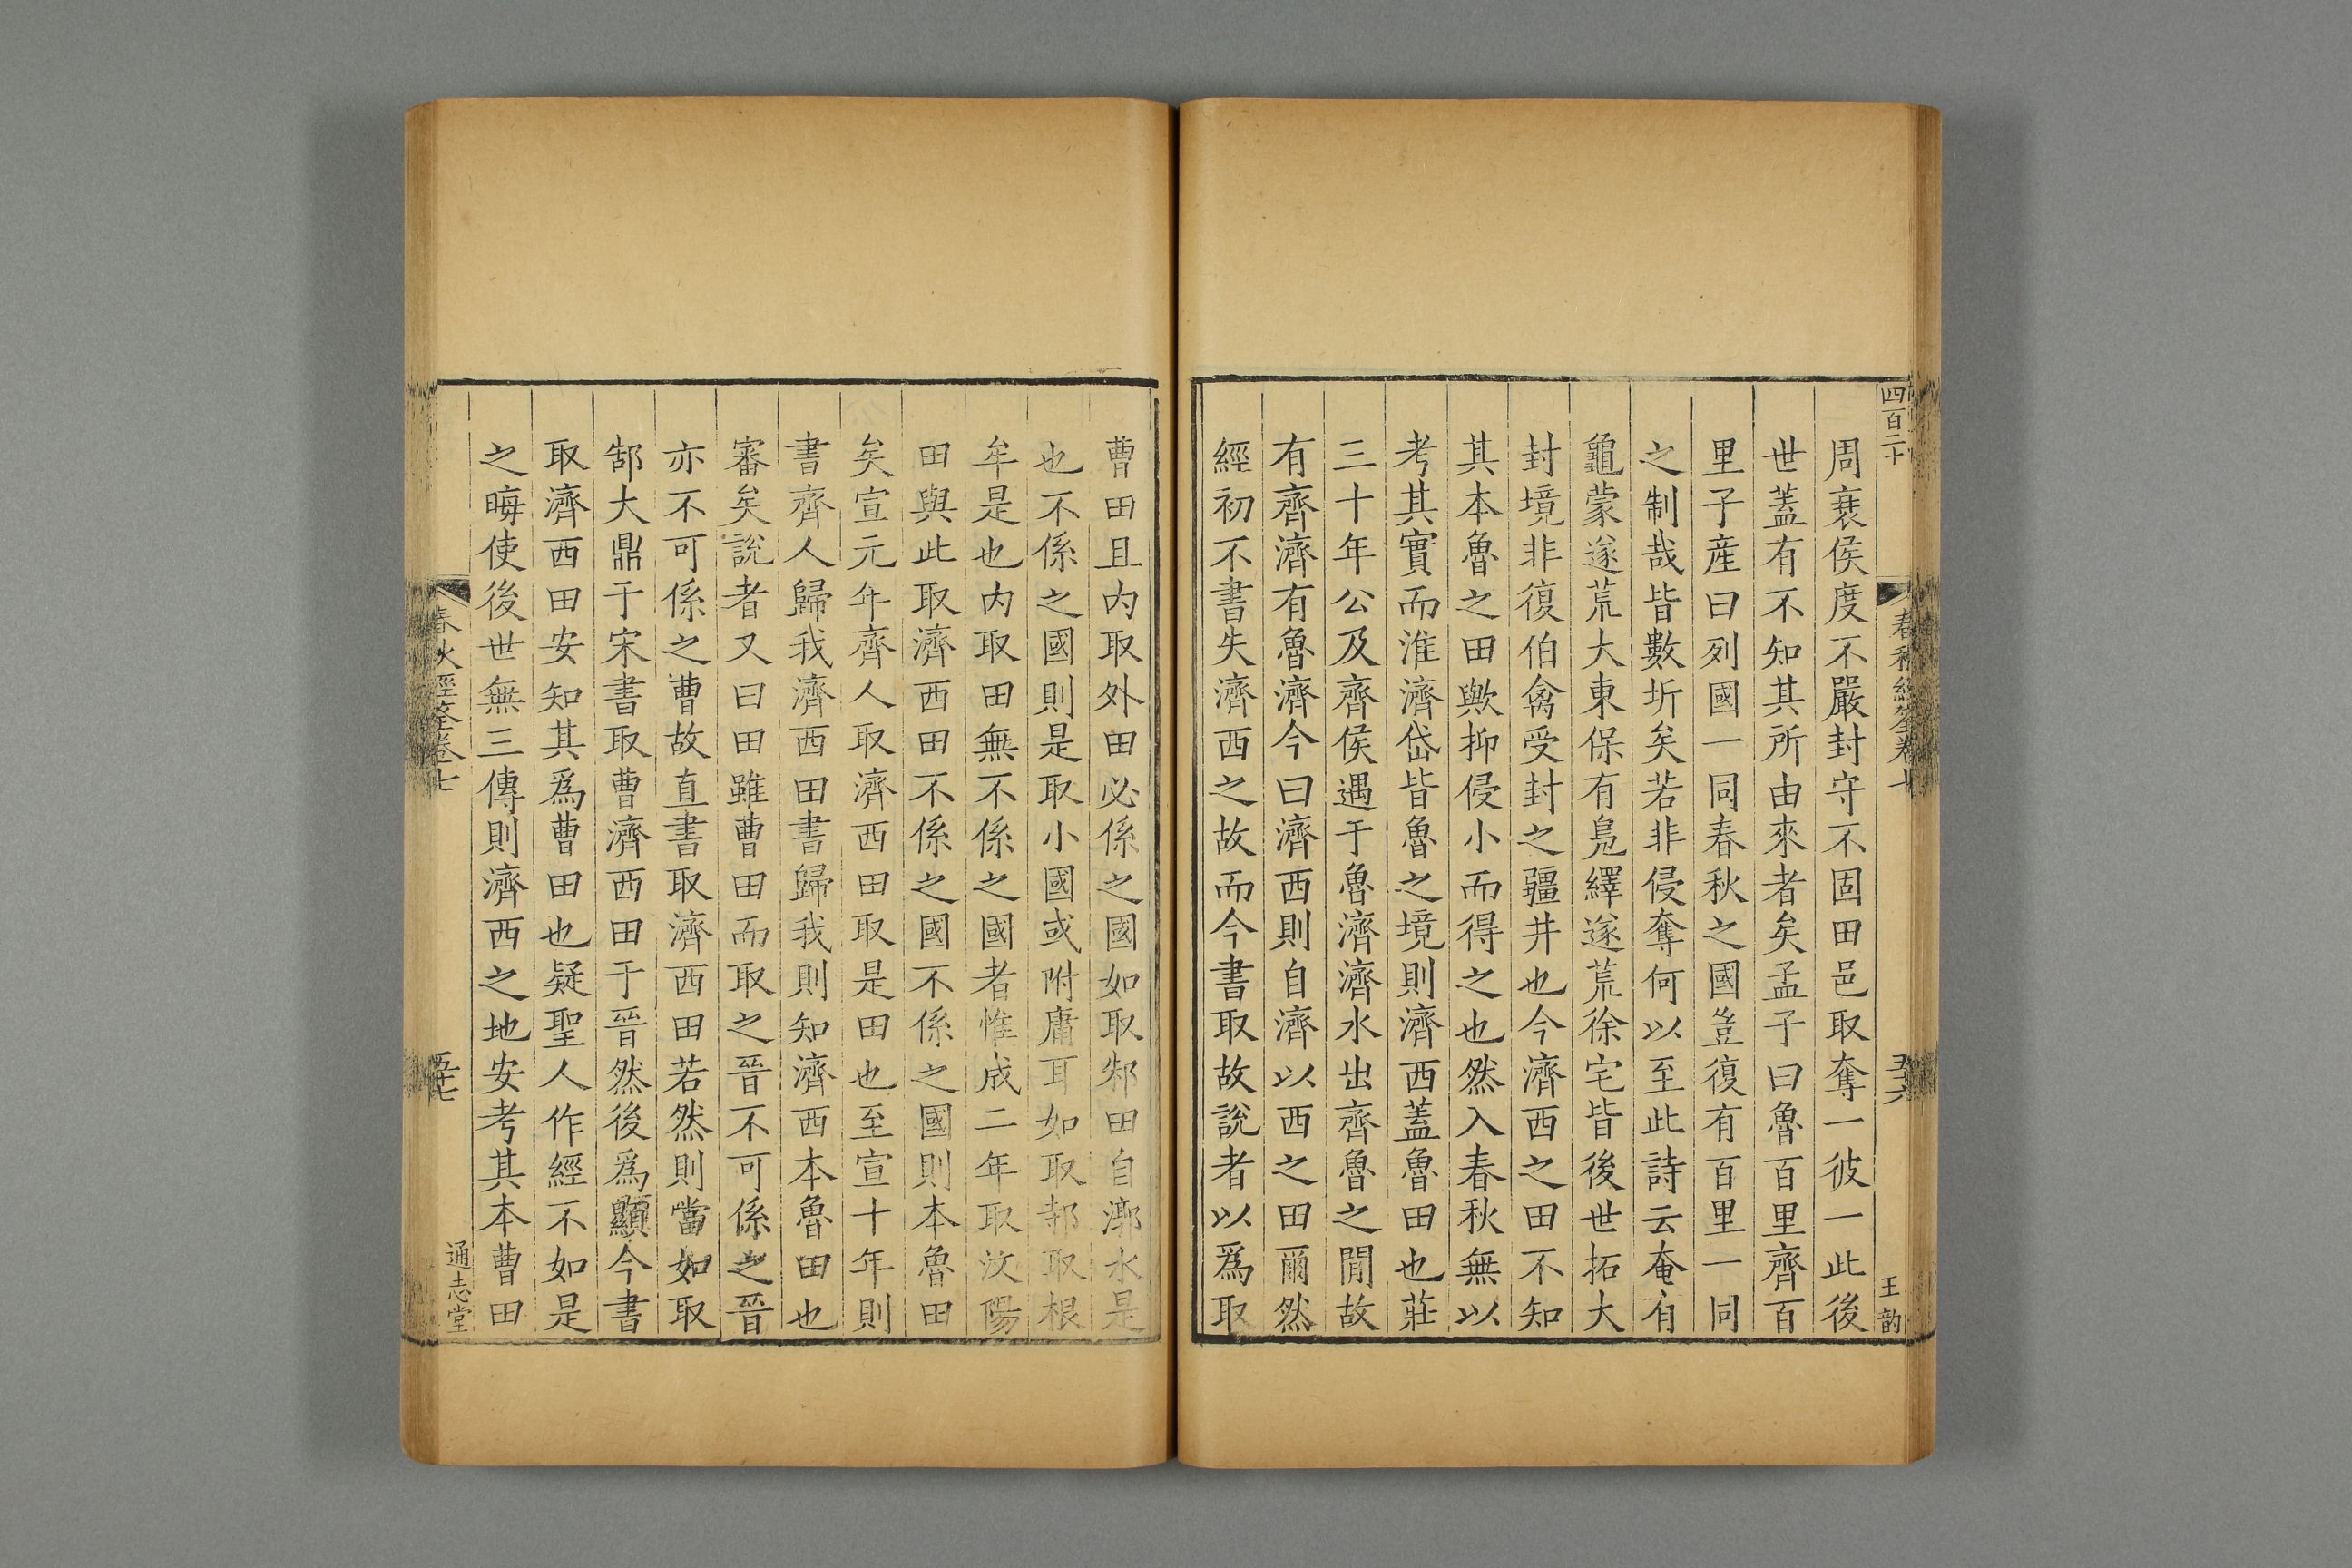 四百二十
春秋經筌卷七
五十六
王韵
周衰侯度不嚴封守不固田邑取奪一彼一此後
世蓋有不知其所由來者矣孟子曰魯百里齊百
里子産曰列國一同春秋之國豈復有百里一同
之制哉皆數圻矣若非侵奪何以至此詩云奄有
龜蒙遂荒大東保有鳧繹遂荒徐宅皆後世拓大
封境非復伯禽受封之疆井也今濟西之田不知
其本魯之田歟抑侵小而得之也然入春秋無以
考其實而淮濟岱皆魯之境則濟西蓋魯田也莊
三十年公及齊侯遇于魯濟濟水出齊魯之閒故
有齊濟有魯濟今曰濟西則自濟以西之田爾然
經初不書失濟西之故而今書取故說者以爲取
曹田且内取外田必係之國如取邾田自漷水是
也不係之國則是取小國或附庸耳如取邿取根
牟是也内取田無不係之國者惟成二年取汶陽
田與此取濟西田不係之國不係之國則本魯田
矣宣元年齊人取濟西田取是田也至宣十年則
書齊人歸我濟西田書歸我則知濟西本魯田也
審矣說者又曰田雖曹田而取之晉不可係之晉
亦不可係之曹故直書取濟西田若然則當如取
郜大鼎于宋書取曹濟西田于晉然後爲顯今書
取濟西田安知其爲曹田也疑聖人作經不如是
之晦使後世無三傳則濟西之地安考其本曹田
春秋經筌卷七
五十七
通志堂